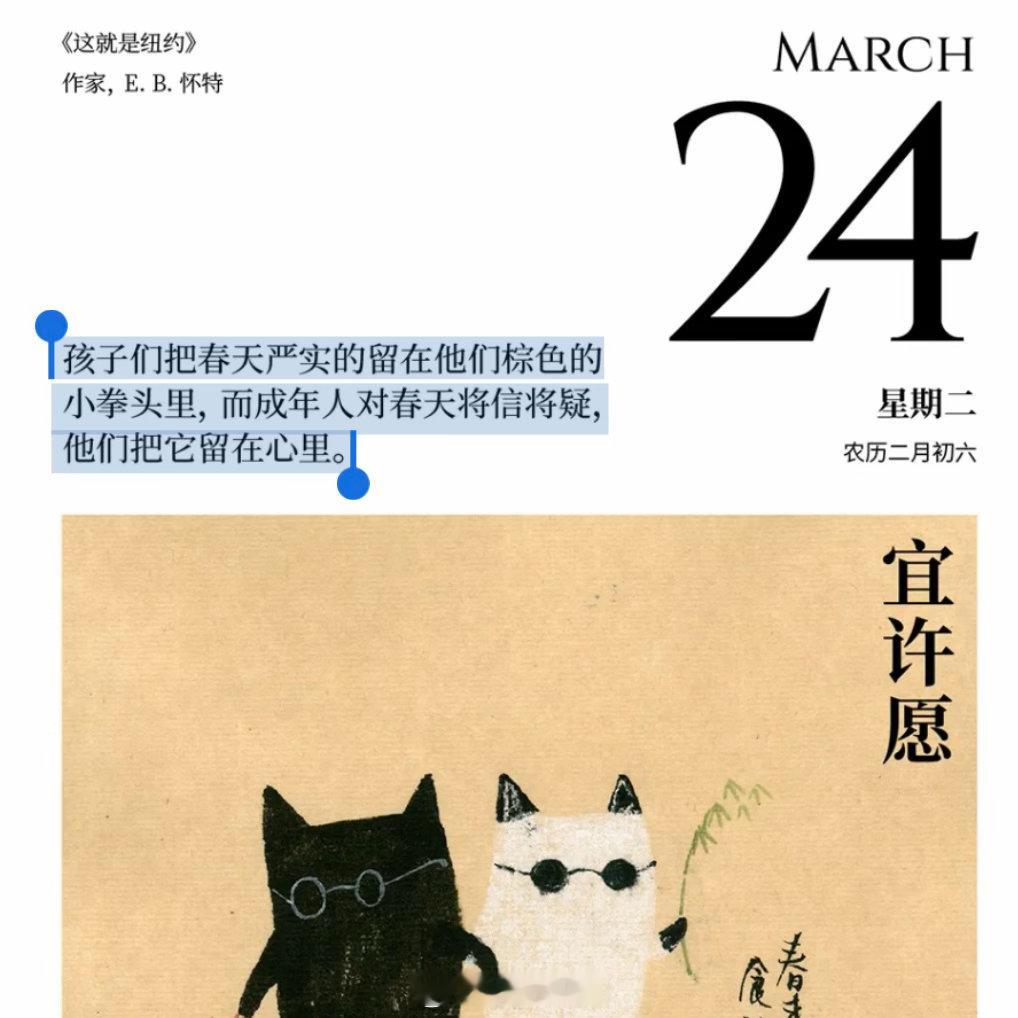 《这就是纽约》
作家, E. B. 怀特
MARCH
24
孩子们把春天严实的留在他们棕色的
小拳头里, 而成年人对春天将信将疑,
他们把它留在心里。
星期二
农历二月初六
宜许愿
春
食